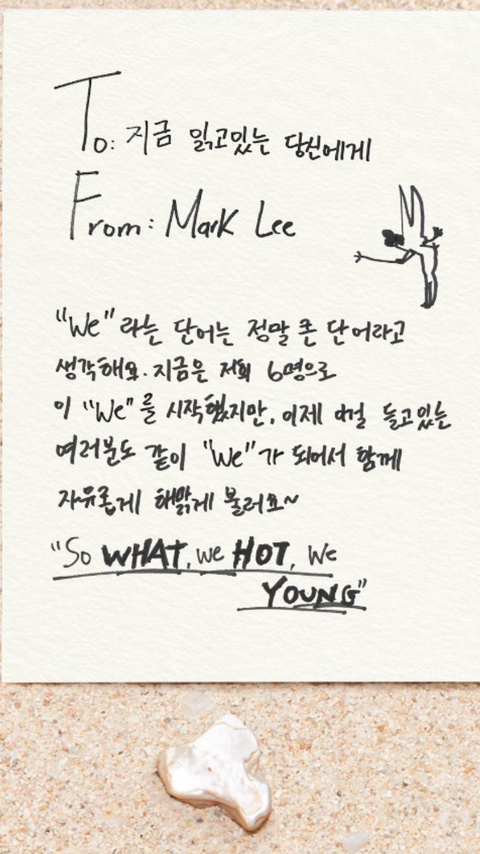 To: 지금 읽고있는 당신에게
From: Mark Lee
"We" 라는 단어는 정말 큰 단어라고
생각해요. 지금은 저희 6명으로
이 "We"를 시작했지만, 이제 이걸 듣고있는
여러분도 같이 "We"가 되어서 함께
자유롭게 해맑게 불러요~
"So WHAT, we HOT, We
YOUNG"